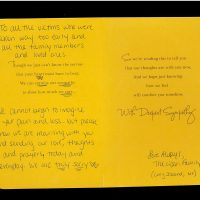 To all the victims who were
taken way too early and
all the family members
and loved ones.
Though we just can't know the sorrow
that your heart must have to bear,
We can reach out
to show how much we care
We cannot begin to imagine
your pain and loss. But please
know we are mourning with you
and sending our love, thoughts
and prayers today and
everyday. We are truly sorry
So we're sending this to tell you
that our thoughts are with you now,
And we hope just knowing
how we feel
will comfort you somehow.
With Deepest Sympathy
The Family